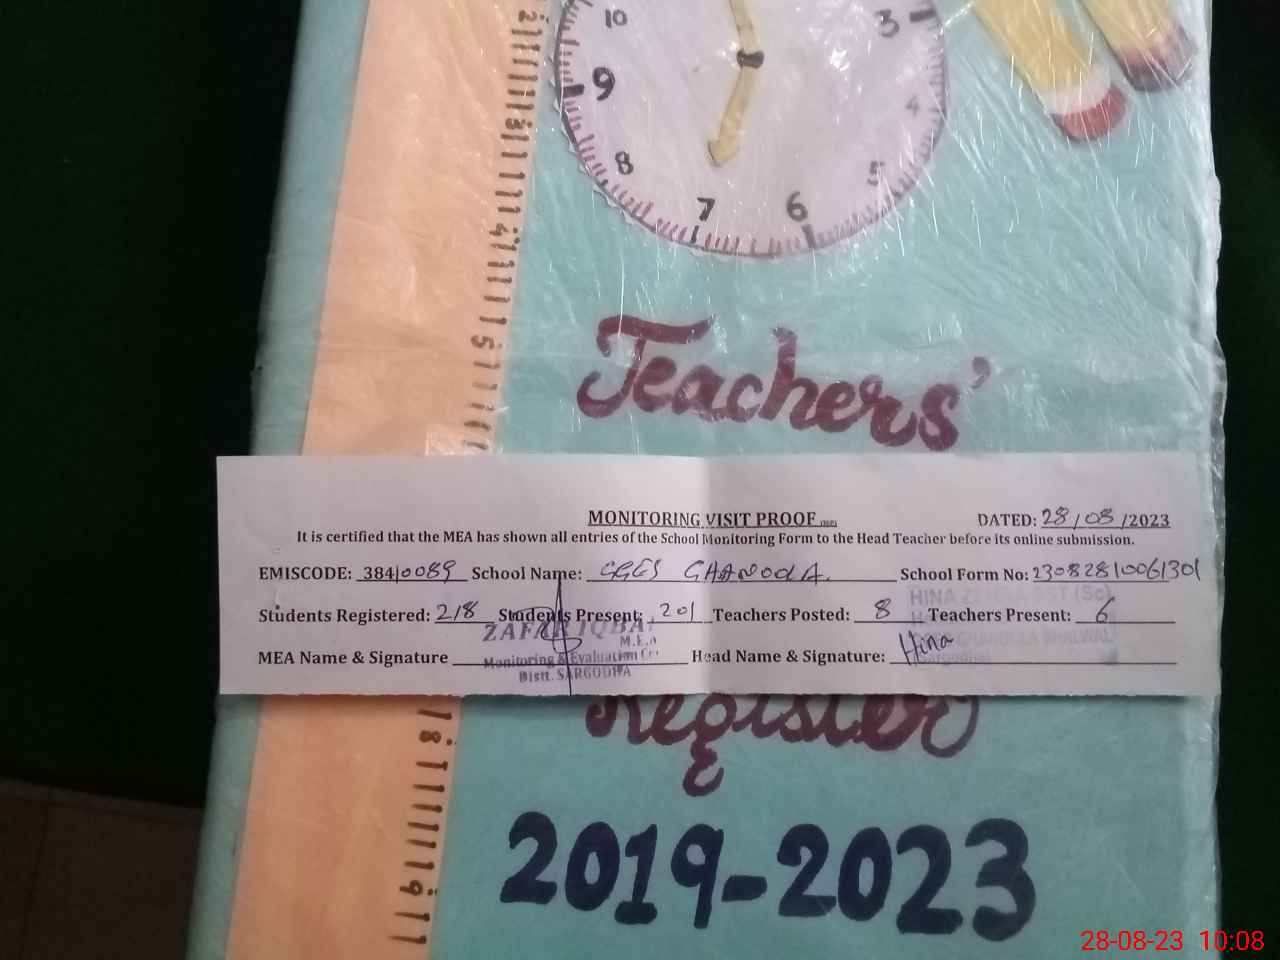 10
3
9
4
8
5
7
6
Teachers'
MONITORING VISIT PROOF
DATED: 28/08/2023
It is certified that the MEA has shown all entries of the School Monitoring Form to the Head Teacher before its online submission.
EMISCODE: 38410089 School Name: GGES GHANOOLA. School Form No: 23082810061301
Students Registered: 218 Students Present: 201 Teachers Posted: 8 Teachers Present: 6
HINA
ZAFAR IQBAL
M.E.A
MEA Name & Signature Head Name & Signature: Hina
Monitoring & Evaluation
Distt. SARGODHA
Register
2019-2023
28-08-23 10:08